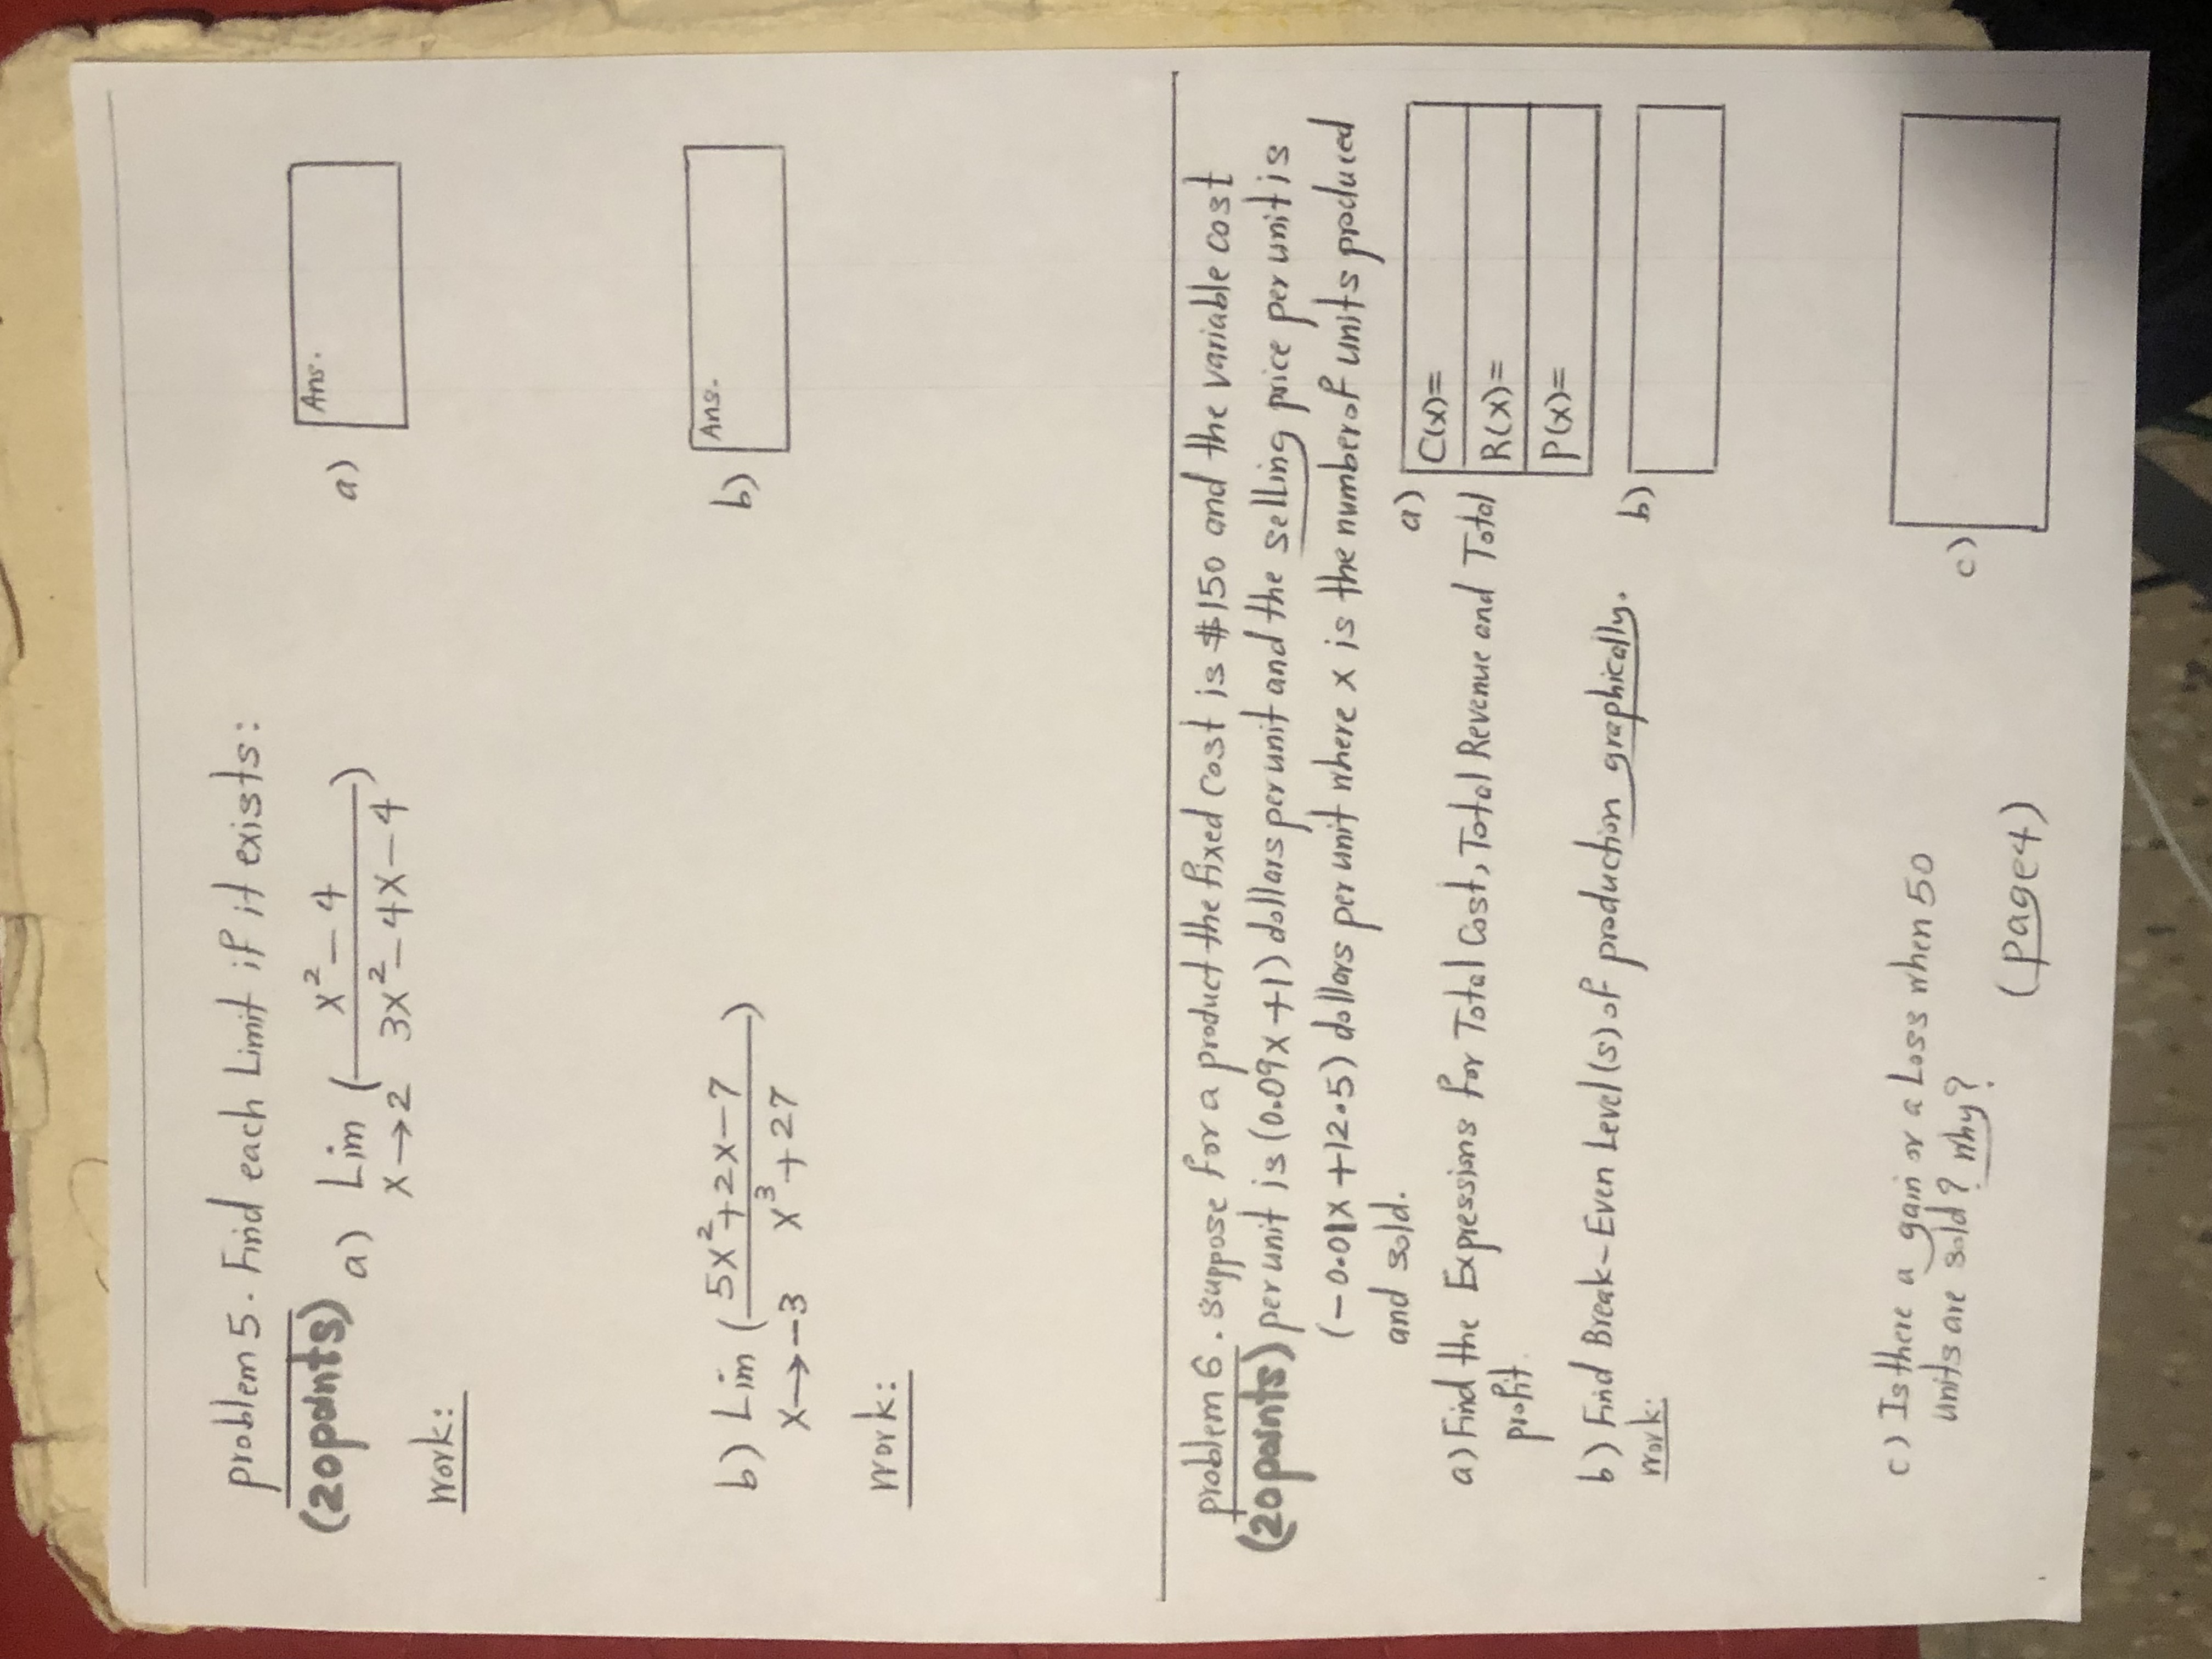 problem 5. Find each Limit if it exists:
(20points)
a) Lim ( x² – 4 / 3x² – 4x – 4 )
x→2
a) Ans.
work:
b) Lim ( 5x² + 2x – 7 / x³ + 27 )
x→–3
b) Ans.
work:
problem 6. suppose for a product the fixed cost is $150 and the variable cost
(20points) per unit is (0.09x+1) dollars per unit and the selling price per unit is
(–0.01x+12.5) dollars per unit where x is the number of units produced
and sold.
a) Find the Expressions for Total Cost, Total Revenue and Total
profit.
a) C(x)=
R(x)=
P(x)=
b) Find Break-Even Level(s) of production graphically.
b)
work:
c) Is there a gain or a Loss when 50
units are sold? why?
c)
(page4)